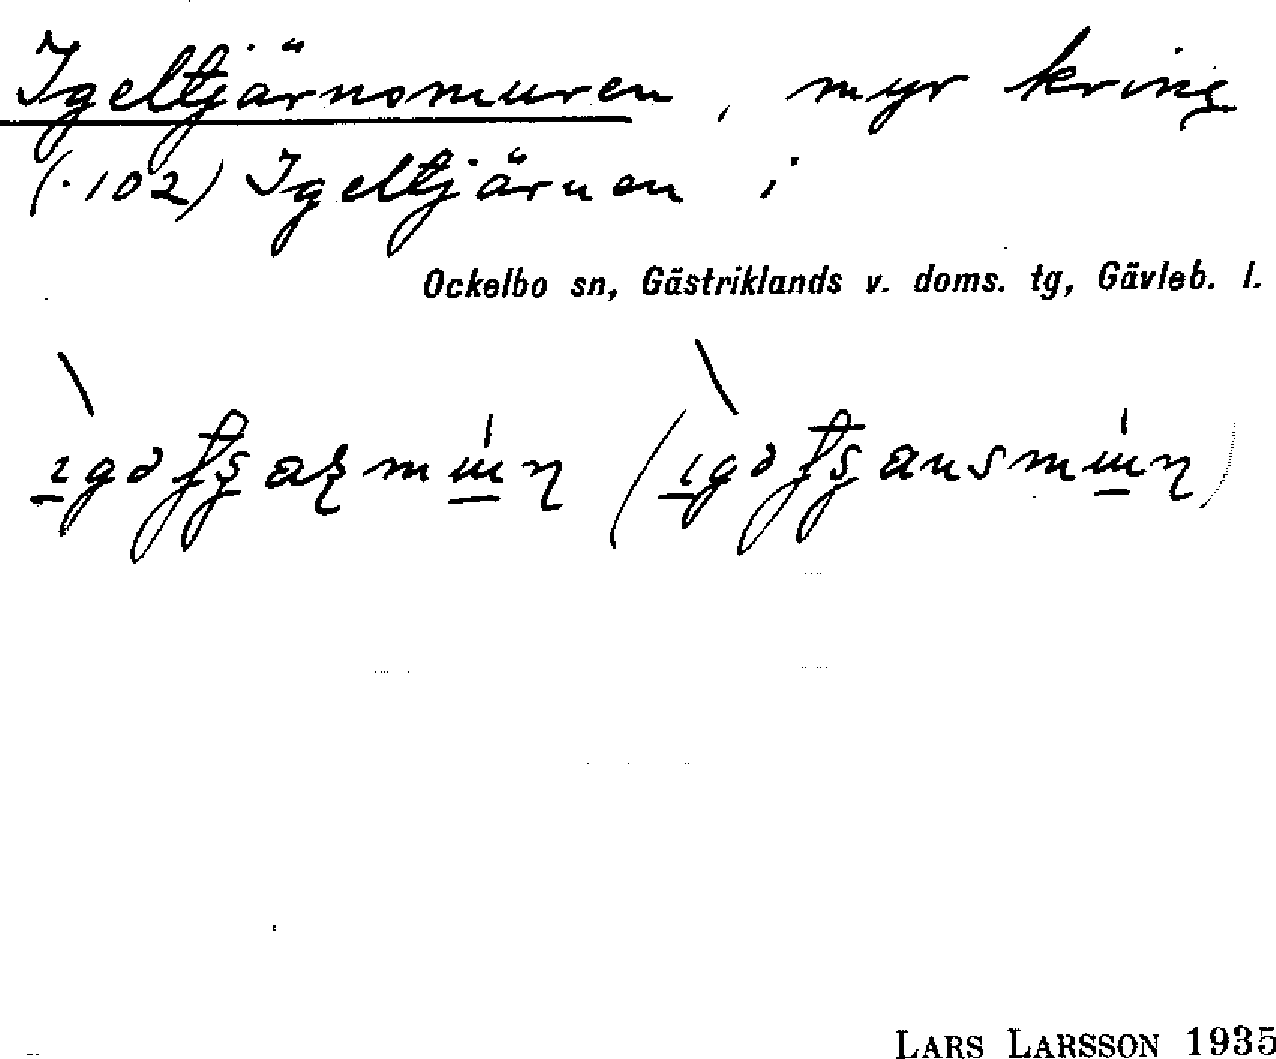 Igeltjärnsmuren, myr kring
(·102) Igeltjärnen i
Ockelbo sn, Gästriklands v. doms. tg, Gävleb. l.
LARS LARSSON 1935